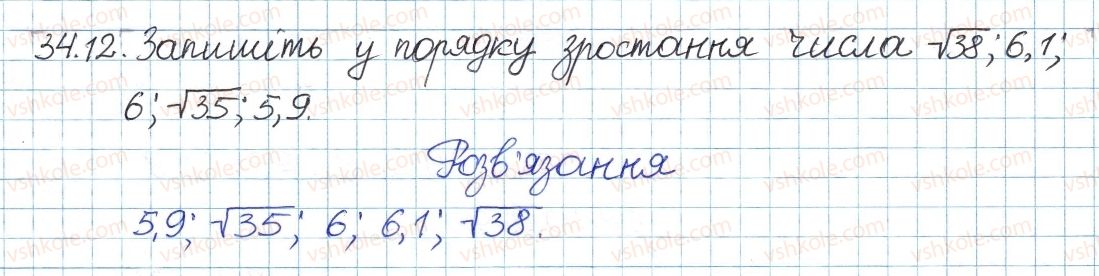 34.12. Запишіть у порядку зростання числа √38; 6,1;
6; √35; 5,9.
Розв'язання
5,9; √35; 6; 6,1; √38.